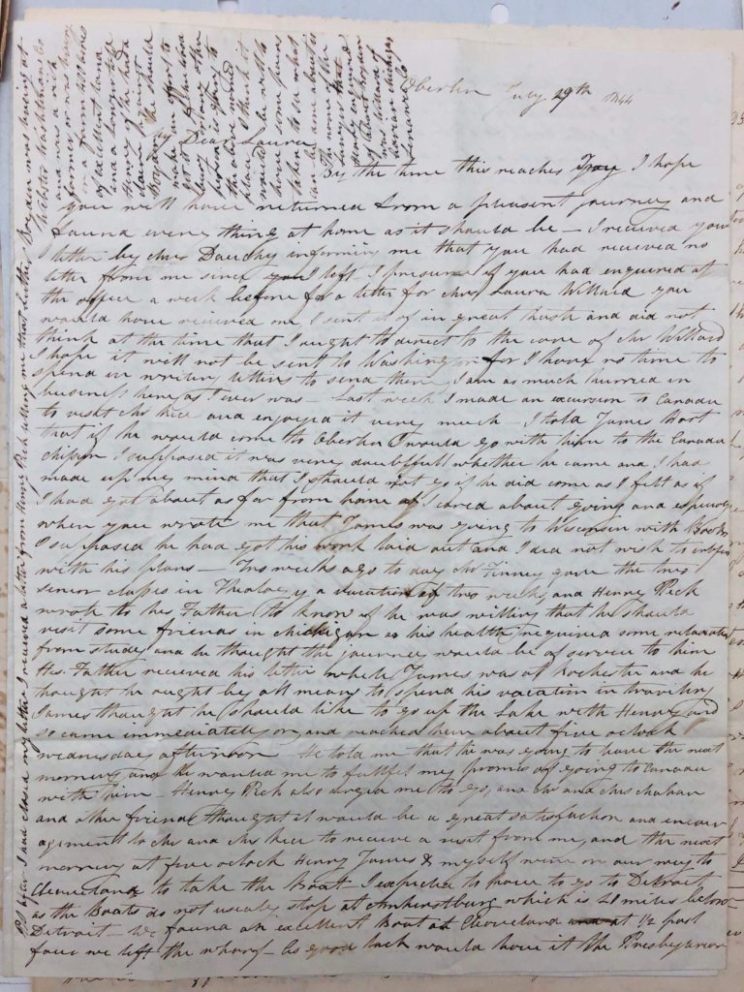 Oberlin July 29th 1844
My Dear Laura
By the time this reaches Troy I hope
you will have returned from a pleasant journey and
found every thing at home as it should be – I received your
letter by Mrs Dauchy informing me that you had received no
letter from me since I left – I presume if you had enquired at
the office a week before for a letter for Mrs Laura Willard you
would have received one I sent it of in great haste and did not
think at the time that I ought to direct to the care of Mr Willard
I hope it will not be sent to Washington for I have no time to
spend in writing letters to send there, I am as much hurried in
business here as I ever was – Last week I made an excursion to Canada
to visit Mr Rice and enjoyed it very much – I told James Bort
that if he would come to Oberlin I would go with him to the Canada
I supposed it was very doubtfull whether he came and I had
made up my mind that I should not go if he did come as I felt as if
I had got about as far from home as I cared about going and especially
when you wrote me that James was going to Wisconsin with
I supposed he had got his work laid out and I did not wish to
with his plans – Two weeks ago to day Mr Finney gave the two
senior classes in Theology a vacation of two weeks, and Henry Peck
wrote to his Father to know if he was willing that he should
visit some friends in Michigan as his health required some relaxation
from study and he thought the journey would be of service to him
His Father received his letter while James was at Rochester and he
thought he ought by all means to spend his vacation in traveling
James thought he should like to go up the Lake with Henry and
so came immediately on and reached here about five oclock
Wednesday afternoon He told me that he was going to leave the next
morning and he wanted me to fulfill my promise of going to Canada
with him – Henry Peck also urged me to go, and Mr and Mrs Mahan
and other friends thought it would be a great satisfaction and encour
agement to Mr and Mrs Rice to receive a visit from me, and the next
morning at five oclock Henry James & myself were on our way to
Cleveland to take the Boat – I expected to have to go to Detroit
as the Boats do not usualy stop at Amherstburg which is 20 miles before
Detroit – We found an excellent Boat at Cleveland and at 1/2 past
four we left the wharf – As good luck would have it the Presbyterian
PS After I had closed my letter I received a letter from Henry Peck telling me that Luther Bryan was living at
Webster Washtenaw Co
and was a rich
farmer
on a farm 200 acres
of excellent land
and a
he should
make an effort to
the above named
place I think it
would be well to
have some pains
taken to see what
can be done about it
the name of the